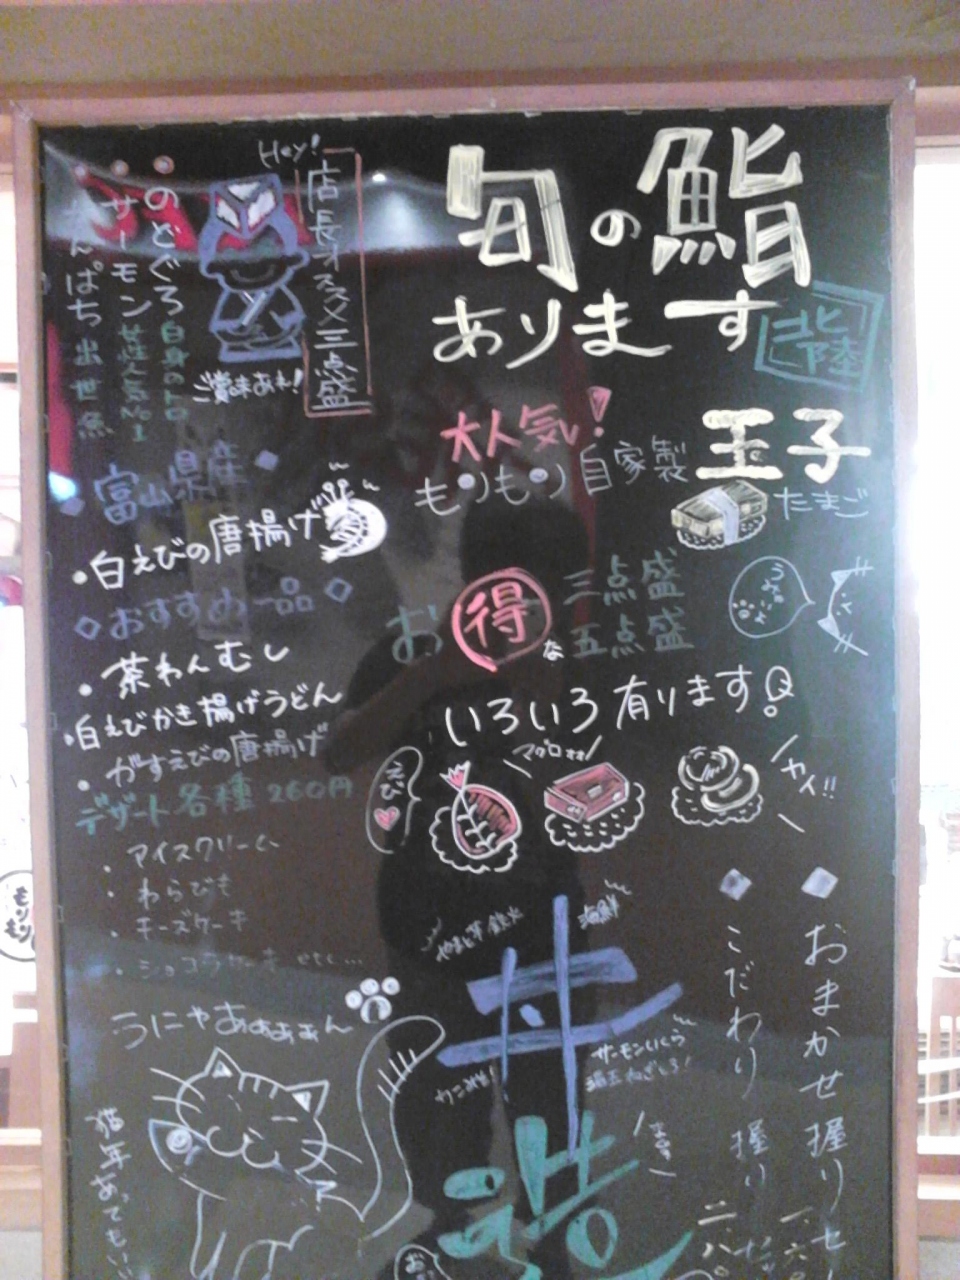 旬の鮨
あります
北陸
Hey!
店長オススメ三点盛
のどぐろ 白身のトロ
サーモン 女性人気No.1
出世魚
ご賞味あれ!
大人気!
もりもり自家製
玉子
たまご
富山県産
・白えびの唐揚げ
◇おすすめ一品◇
・茶わんむし
・白えびかき揚げうどん
・がすえびの唐揚げ
デザート各種 260円
・アイスクリーム
・わらびもち
・チーズケーキ
・ショコラケーキ etc...
お得な
三点盛
五点盛
いろいろ有ります
えび
マグロォォ
◆おまかせ握りセ
◆こだわり握り
海鮮
丼
サーモンいくら
うにゃあぁぁぁん
猫年あってもいい
造
もりもり